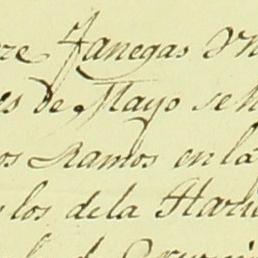 re Fanegas Yn
es de Mayo se h
os Ramos en la
los de la Haru